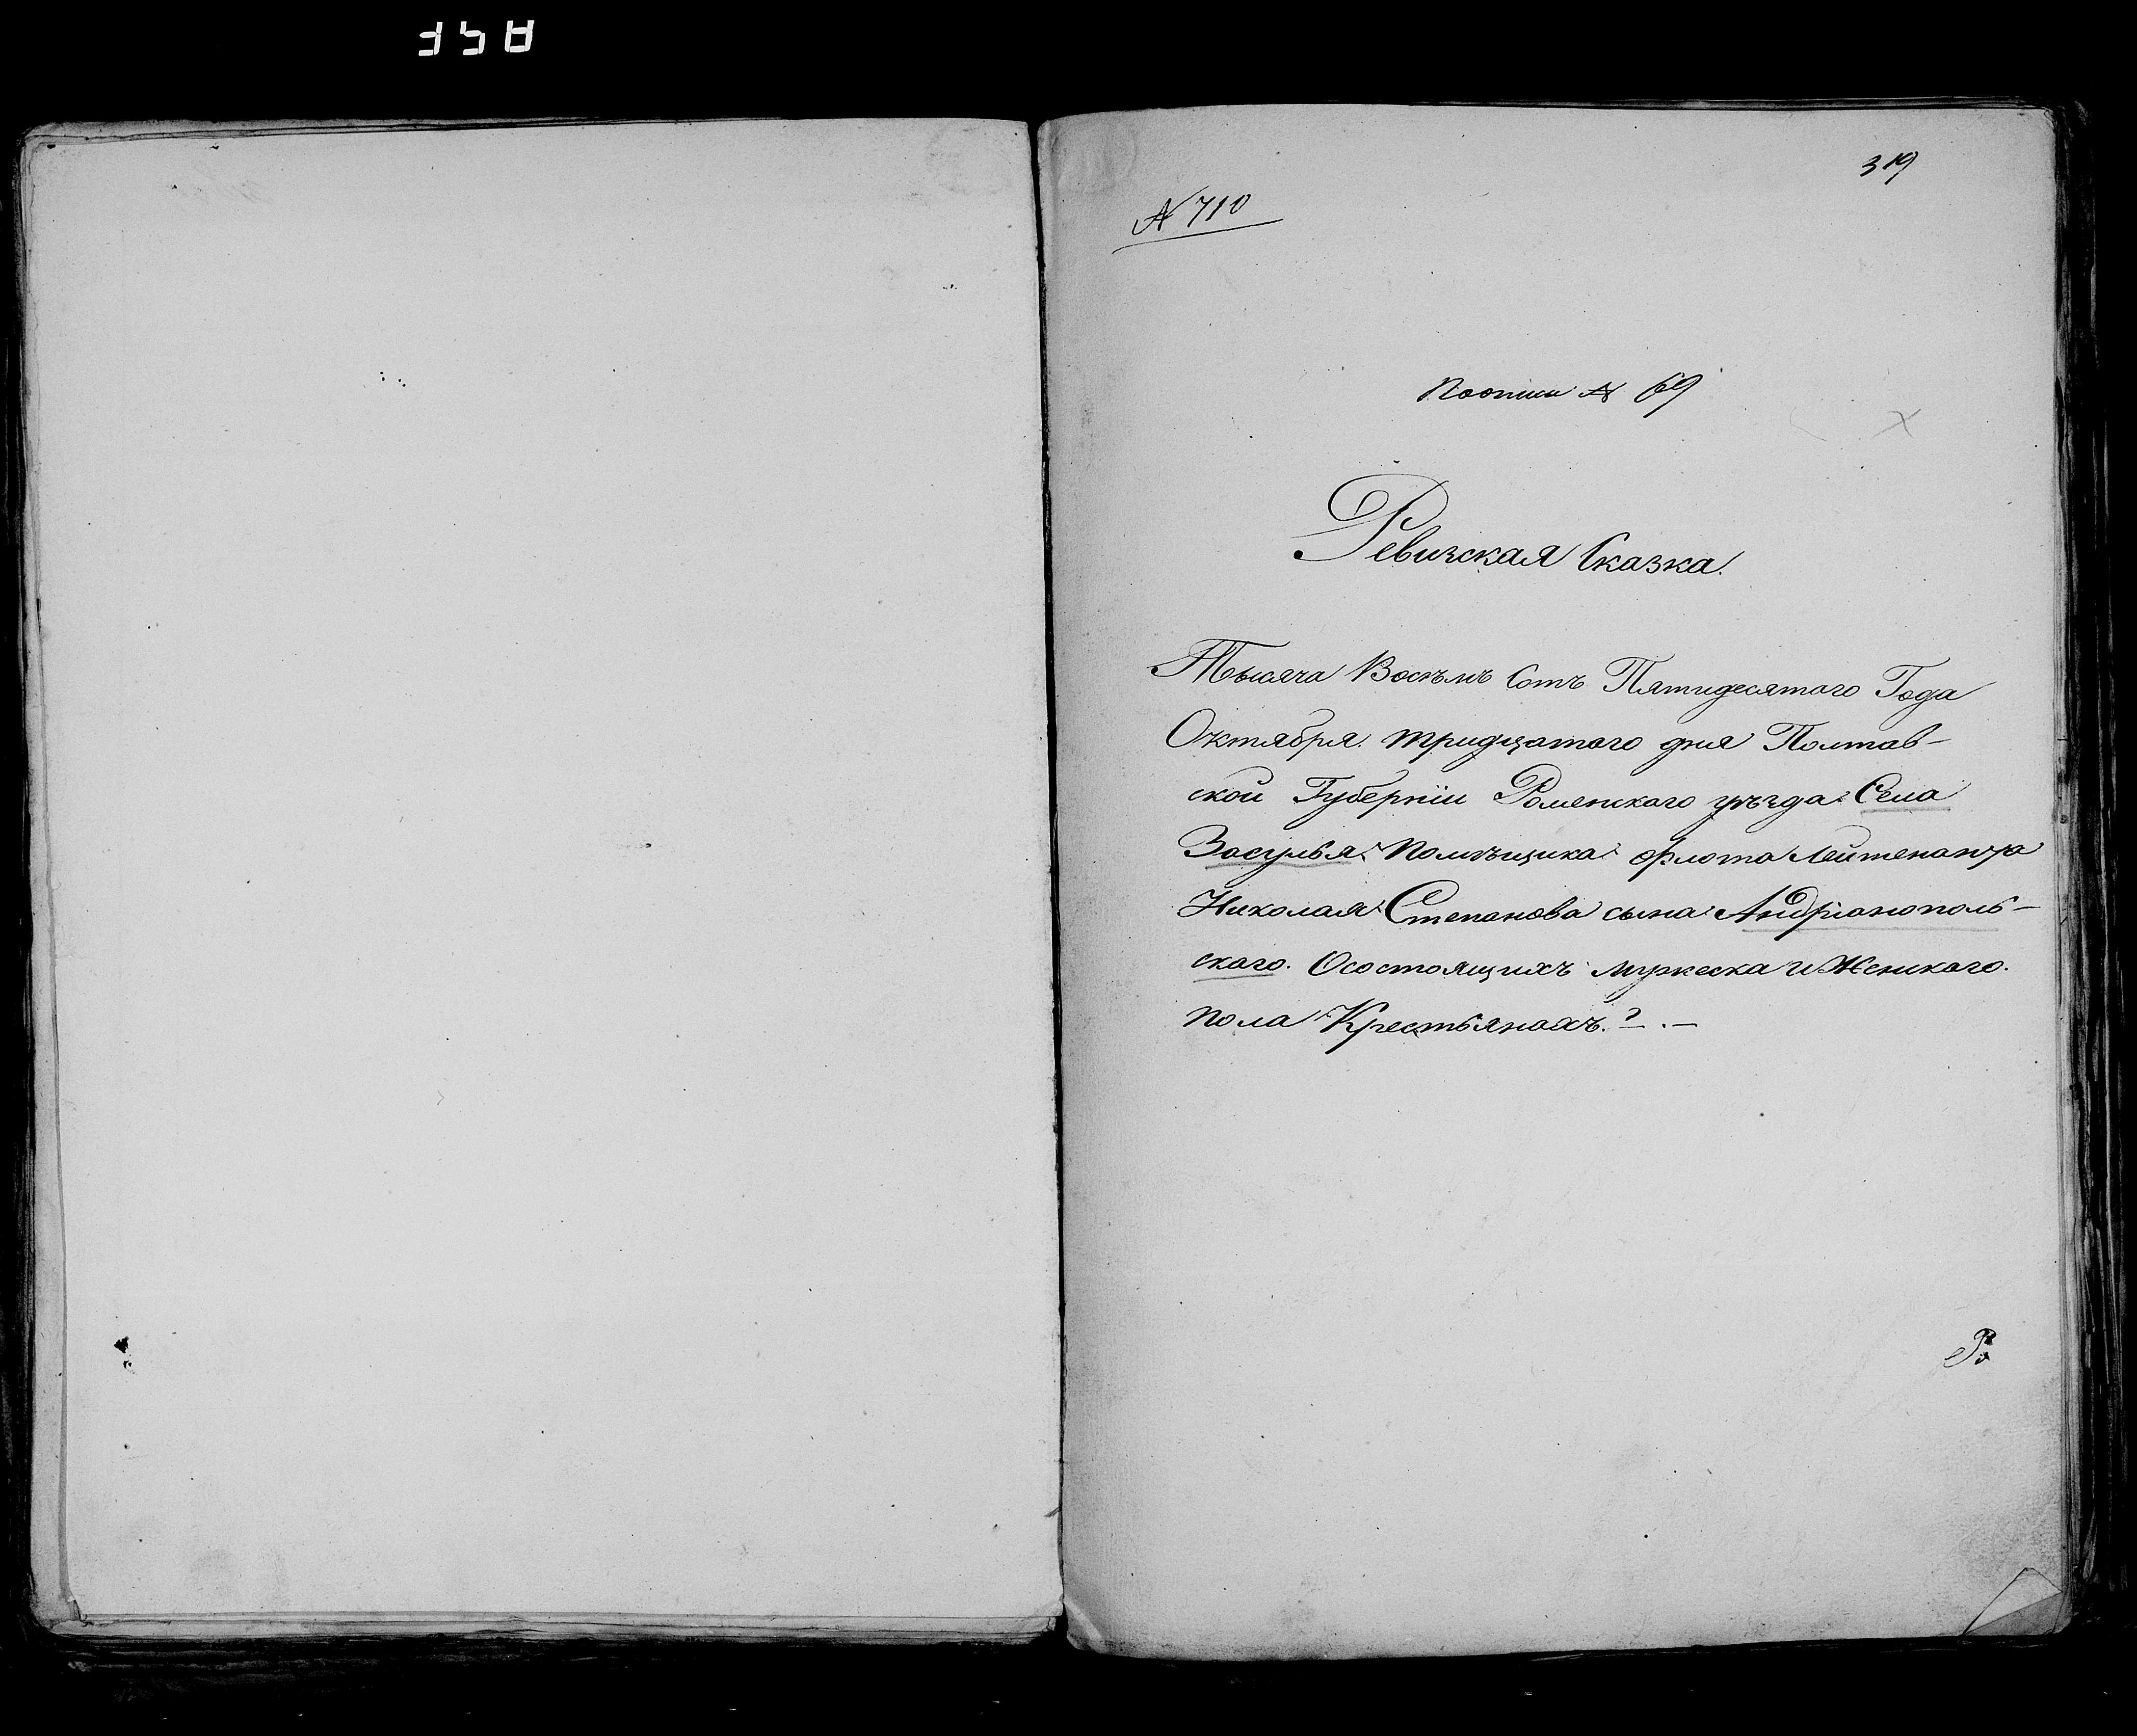 319
N 710
Поописи N 69
Ревизская Сказка.
Тысяча Восѣмъ Сотъ Пятидесятого Года
Октября тридцатого дня Полтав-
ской Губерніи Роменского уѣзда Села
Засулья Помѣщика флота Лейтенанта
Николая Степанова сына Андріанополь-
ского. Осостоящихъ мужеска и Женского
пола Крестьянахъ.